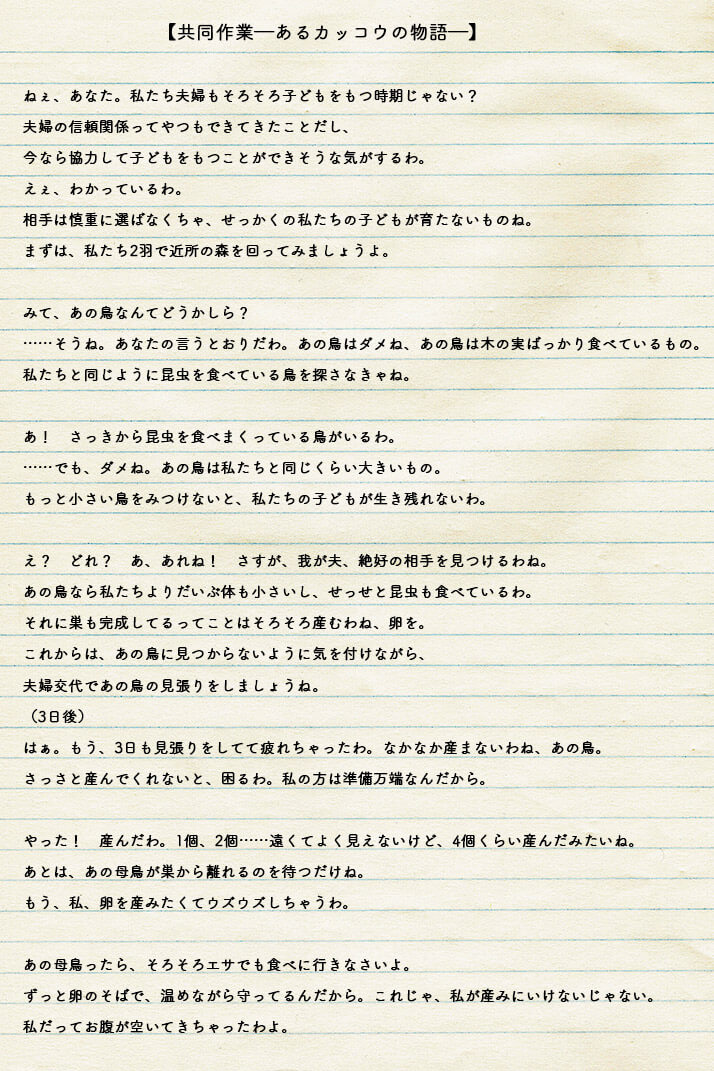 【共同作業―あるカッコウの物語―】
ねぇ、あなた。私たち夫婦もそろそろ子どもをもつ時期じゃない？
夫婦の信頼関係ってやつもできてきたことだし、
今なら協力して子どもをもつことができそうな気がするわ。
えぇ、わかっているわ。
相手は慎重に選ばなくちゃ、せっかくの私たちの子どもが育たないものね。
まずは、私たち2羽で近所の森を回ってみましょうよ。
みて、あの鳥なんてどうかしら？
……そうね。あなたの言うとおりだわ。あの鳥はダメね、あの鳥は木の実ばっかり食べているもの。
私たちと同じように昆虫を食べている鳥を探さなきゃね。
あ！　さっきから昆虫を食べまくっている鳥がいるわ。
……でも、ダメね。あの鳥は私たちと同じくらい大きいもの。
もっと小さい鳥をみつけないと、私たちの子どもが生き残れないわ。
え？　どれ？　あ、あれね！　さすが、我が夫、絶好の相手を見つけるわね。
あの鳥なら私たちよりだいぶ体も小さいし、せっせと昆虫も食べているわ。
それに巣も完成してるってことはそろそろ産むわね、卵を。
これからは、あの鳥に見つからないように気を付けながら、
夫婦交代であの鳥の見張りをしましょうね。
（3日後）
はぁ。もう、3日も見張りをしてて疲れちゃったわ。なかなか産まないわね、あの鳥。
さっさと産んでくれないと、困るわ。私の方は準備万端なんだから。
やった！　産んだわ。1個、2個……遠くてよく見えないけど、4個くらい産んだみたいね。
あとは、あの母鳥が巣から離れるのを待つだけね。
もう、私、卵を産みたくてウズウズしちゃうわ。
あの母鳥ったら、そろそろエサでも食べに行きなさいよ。
ずっと卵のそばで、温めながら守ってるんだから。これじゃ、私が産みにいけないじゃない。
私だってお腹が空いてきちゃったわよ。